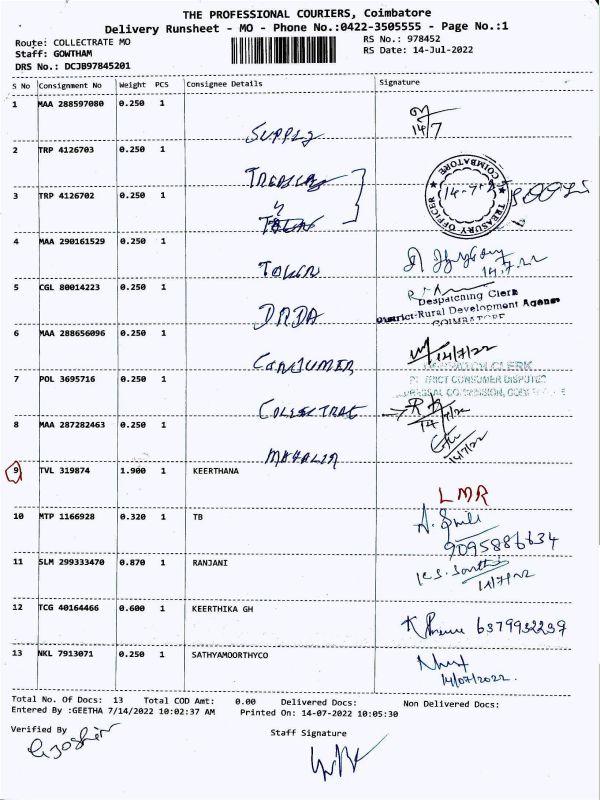 THE PROFESSIONAL COURIERS, Coimbatore
Delivery Runsheet - MO - Phone No.:0422-3505555 - Page No.:1
Route: COLLECTRATE MO
Staff: GOWTHAM
DRS No.: DCJB97845201
RS No.: 978452
RS Date: 14-Jul-2022
S No Consignment No Weight PCS Consignee Details Signature
1 MAA 288597080 0.250 1 SUPPLY 14/7
2 TRP 4126703 0.250 1 TREASURY
TREASURY OFFICER COIMBATORE
3 TRP 4126702 0.250 1
4 MAA 290161529 0.250 1 TOWN 14.7.22
5 CGL 80014223 0.250 1 DRDA
Despatching Clerk
District Rural Development Agency
COIMBATORE
6 MAA 288656096 0.250 1 CONSUMER 14/7/22
DESPATCH CLERK
DISTRICT CONSUMER DISPUTES
7 POL 3695716 0.250 1 COLLECTRAT
8 MAA 287282463 0.250 1 MAHALIR 14/7/22
9 TVL 319874 1.900 1 KEERTHANA LMR
10 MTP 1166928 0.320 1 TB
9095886634
11 SLM 299333470 0.870 1 RANJANI 14/7/22
12 TCG 40164466 0.600 1 KEERTHIKA GH 6379932239
13 NKL 7913071 0.250 1 SATHYAMOORTHYCO 14/07/2022.
Total No. Of Docs: 13 Total COD Amt: 0.00 Delivered Docs: Non Delivered Docs:
Entered By :GEETHA 7/14/2022 10:02:37 AM Printed On: 14-07-2022 10:05:30
Verified By Staff Signature